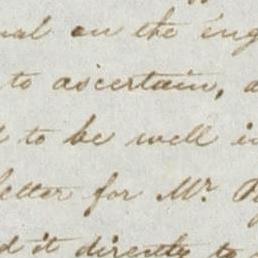 on the
to ascertain,
to be well
letter for Mr.
it directly to